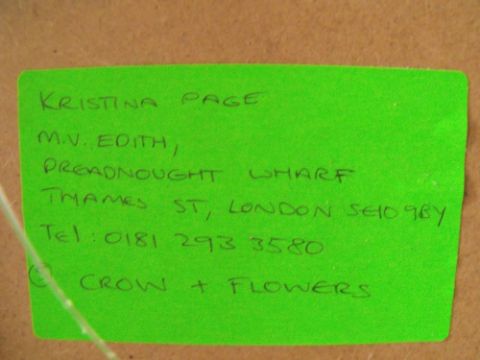 KRISTINA PAGE
M.V. EDITH,
DREADNOUGHT WHARF
THAMES ST, LONDON SE10 9BY
Tel: 0181 293 3580
CROW + FLOWERS